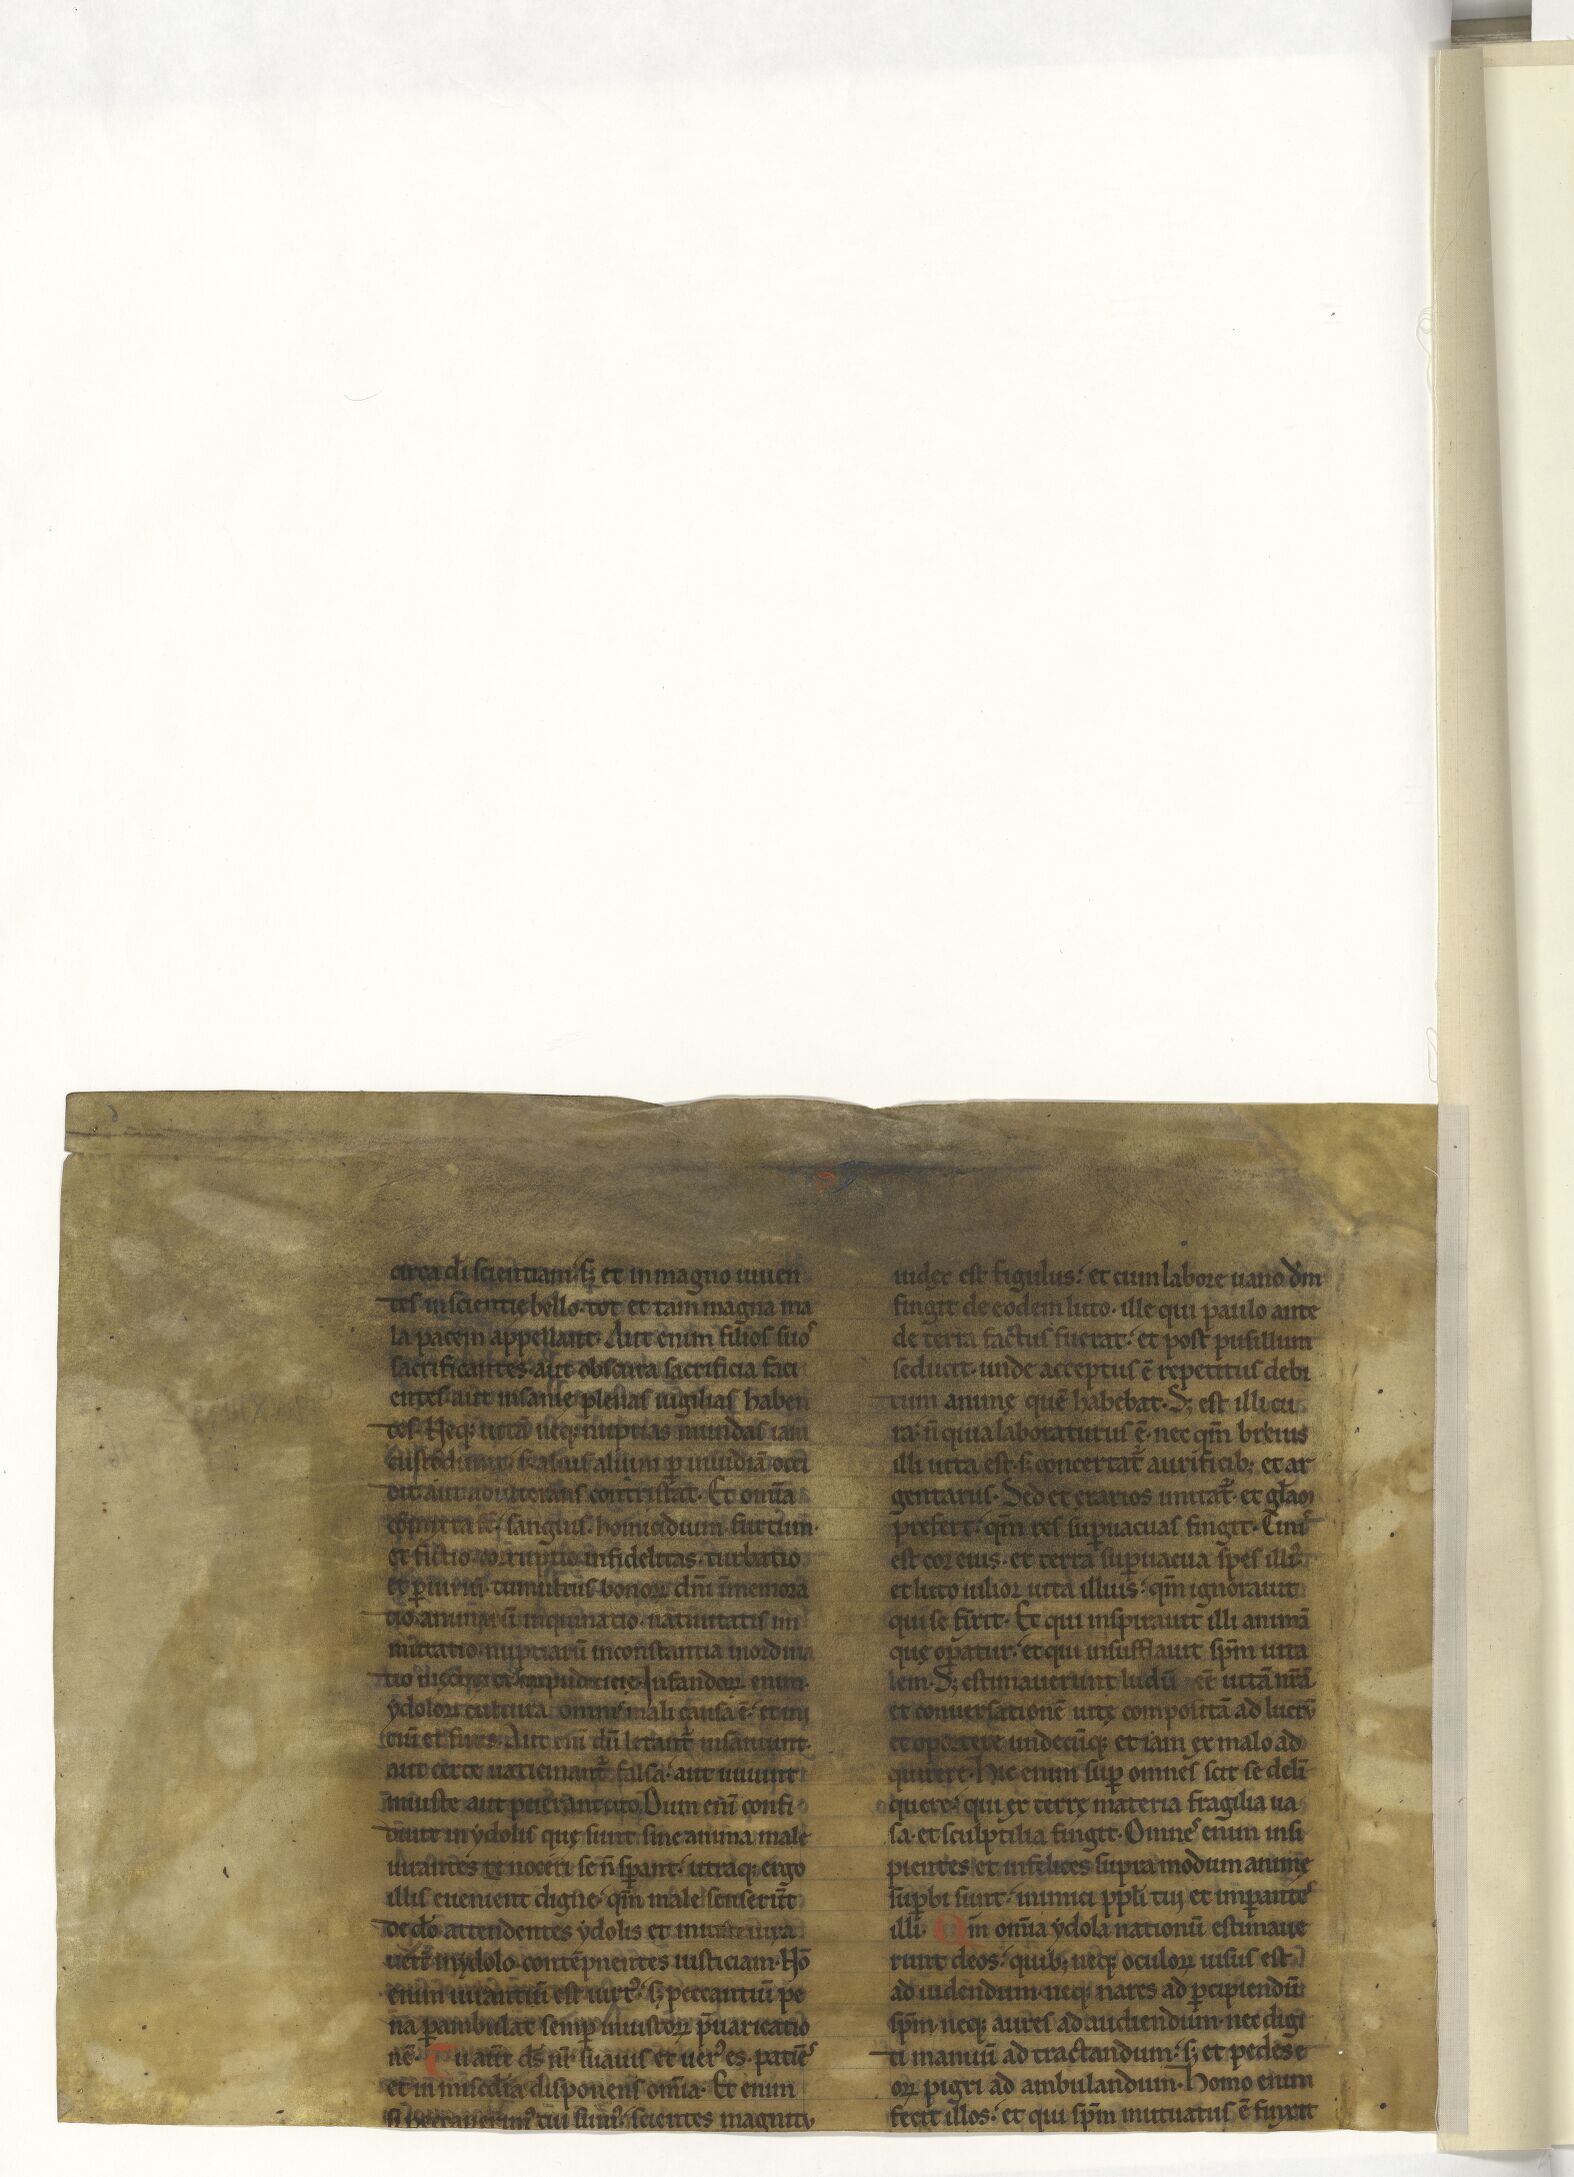 circa di scientiam· sꝫ et in magno uiuen
tes inscientie bello· tot et tam magna ma
la pacem appellant· Aut enim filios suos
sacrificantes· aut obscura sacrificia faci
entes· aut insanie plenas uigilias haben
tes· Neqꝫ uitā neqꝫ nuptias mundas iam
custodiunt· sꝫ alius alium ꝑ inuidiā occi
dit· aut adulterans contristat· Et omīa
cōmixta st̄· sanguis· homicidium· furtum·
et fictio· corruptio· infidelitas· turbatio
et ꝑiuriū· tumultus· bonoꝝ dn̄i īmemora
tio· animarū inquinatio· natiuitatis im
mutatio· nuptiarū inconstantia· inordina
tio mechie et impudicicie· Infandoꝝ enim
ydoloꝝ cultura omnis mali causa ē· et ini
tiū et finis· Aut eni dū letant᷑ insaniunt·
aut certe uaticinant᷑ falsa· aut uiuunt
iniuste aut peierant cito Dum eni confi
dunt in ydolis quę sunt sine anima male
iurantes noceri se n̄ sꝑant· utraqꝫ ergo
illis euenient digne· qm̄ male senserūt
de dō attendentes ydolis et iniuste iura
uert̄ in ydolo contēpnentes iusticiam· Nō
enim iurantiū est uirt᷒· sꝫ peccantiū pe
na ꝑambulat semꝑ iniustoꝝ p̄uaricatio
nē· Tu aūt ds̄ nr̄ suauis et uer᷒ es· patiēs
et in misc̄dia disponens omīa· Et enim
si peccauerim᷒ tui sum᷒· scientes magnitu
iudex est figulus· et cum labore uano dm̄
fingit de eodem luto· ille qui paulo ante
de terra factus fuerat· et post pusillum
se ducit· unde acceptus ē repetitus debi
tum animę quē habebat· Sꝫ est illi cu
ra· n̄ quia laboraturus ē· nec qm̄ breuis
illi uita est· sꝫ concertat᷑ aurificibꝫ et ar
gentariis· Sed et erarios imitat᷑· et glam̄
prefert· qm̄ res suꝑuacuas fingit· Cinis
est cor eius· et terra suꝑuacua spes illi᷒·
et luto uilior uita illius· qm̄ ignorauit
qui se finxit· Et qui inspirauit illi animā
quę oꝑatur· et qui insufflauit sp̄m uita
lem· Sꝫ estimauerunt ludū eē uitā nr̄ā
et conuersationē uitę compositā ad lucrū
et oportere undecūqꝫ et iam ex malo ad
quirere· Hic enim suꝑ omnes scit se deli
quere· qui ex terrę materia fragilia ua
sa· et sculptilia fingit· Omnes enim insi
pientes et infelices supra modum animę
suꝑbi sunt· inimici pp̄li tui et imꝑantes
illi· Qm̄ om̄ia ydola nationū estimaue
runt deos· quibꝫ neqꝫ oculoꝝ uisus est
ad uidendum· neqꝫ nares ad ꝑcipiendū
sp̄m· neqꝫ aures ad audiendum· nec digi
ti manuū ad tractandum· sꝫ et pedes e
oꝝ pigri ad ambulandum· Homo enim
fecit illos· et qui sp̄m mutuatus ē finxit